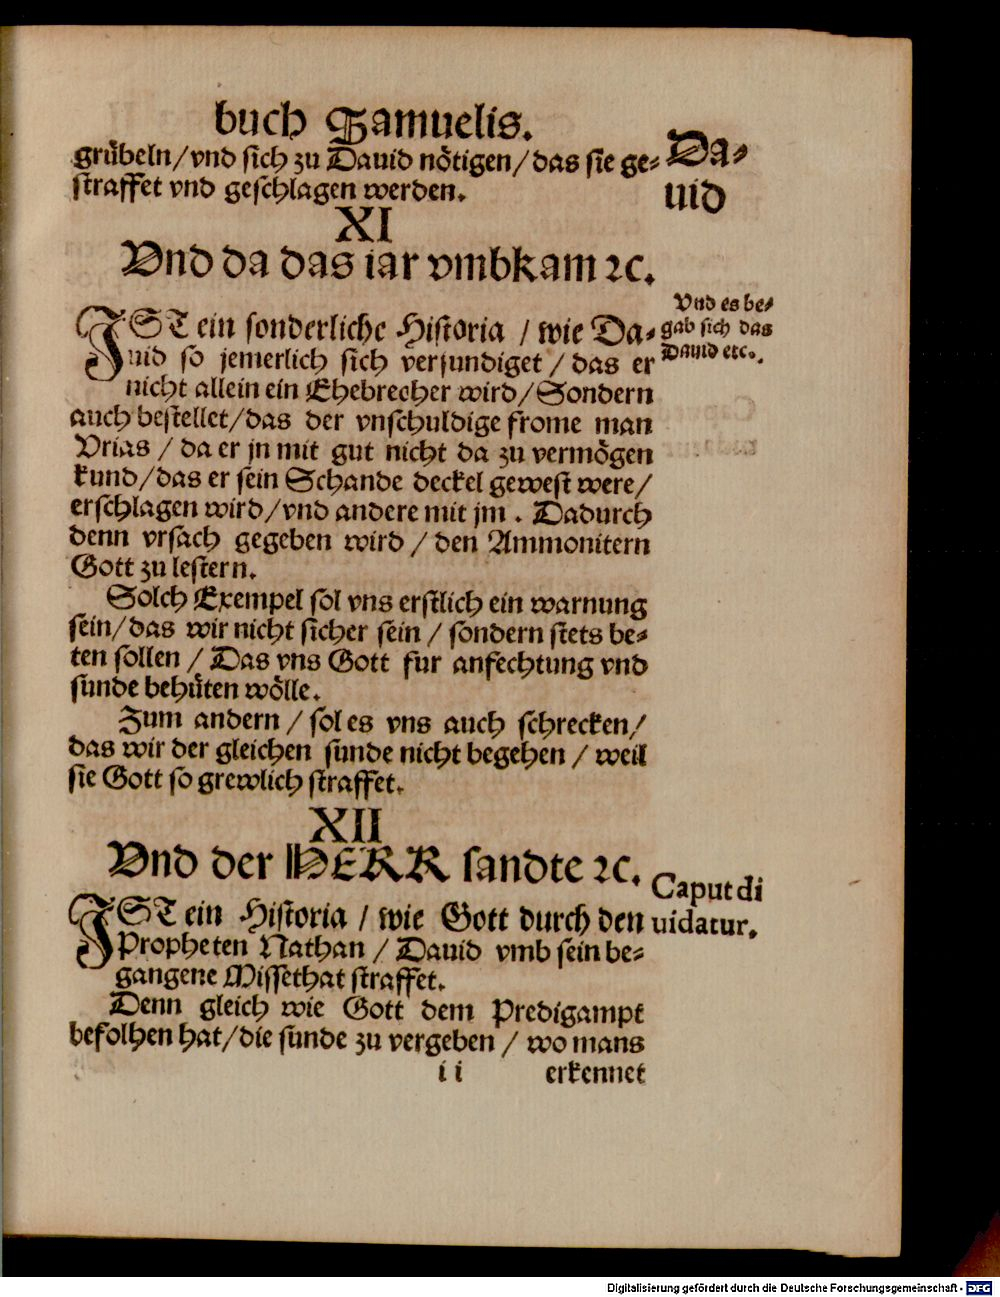 buch Samuelis.
grübeln/vnd sich zu Dauid nötigen/das sie ge-
straffet vnd geschlagen werden.
Da-
uid
XI
Vnd da das iar vmbkam ꝛc.
Vnd es be-
gab sich das
Dauid etc..
IST ein sonderliche Historia / wie Da-
uid so jemerlich sich versundiget / das er
nicht allein ein Ehebrecher wird/Sondern
auch bestellet/das der vnschuldige frome man
Vrias / da er jn mit gut nicht da zu vermögen
kund/das er sein Schande deckel gewest were/
erschlagen wird/vnd andere mit jm . Dadurch
denn vrsach gegeben wird / den Ammonitern
Gott zu lestern.
Solch Exempel sol vns erstlich ein warnung
sein/das wir nicht sicher sein / sondern stets be-
ten sollen / Das vns Gott fur anfechtung vnd
sunde behüten wölle.
Zum andern / sol es vns auch schrecken/
das wir der gleichen sunde nicht begehen / weil
sie Gott so grewlich straffet.
XII
Vnd der HERR sandte ꝛc.
Caput di
uidatur.
IST ein Historia / wie Gott durch den
Propheten Nathan / Dauid vmb sein be-
gangene Missethat straffet.
Denn gleich wie Gott dem Predigampt
befolhen hat/die sunde zu vergeben / wo mans
i i erkennet
Digitalisierung gefördert durch die Deutsche Forschungsgemeinschaft - DFG